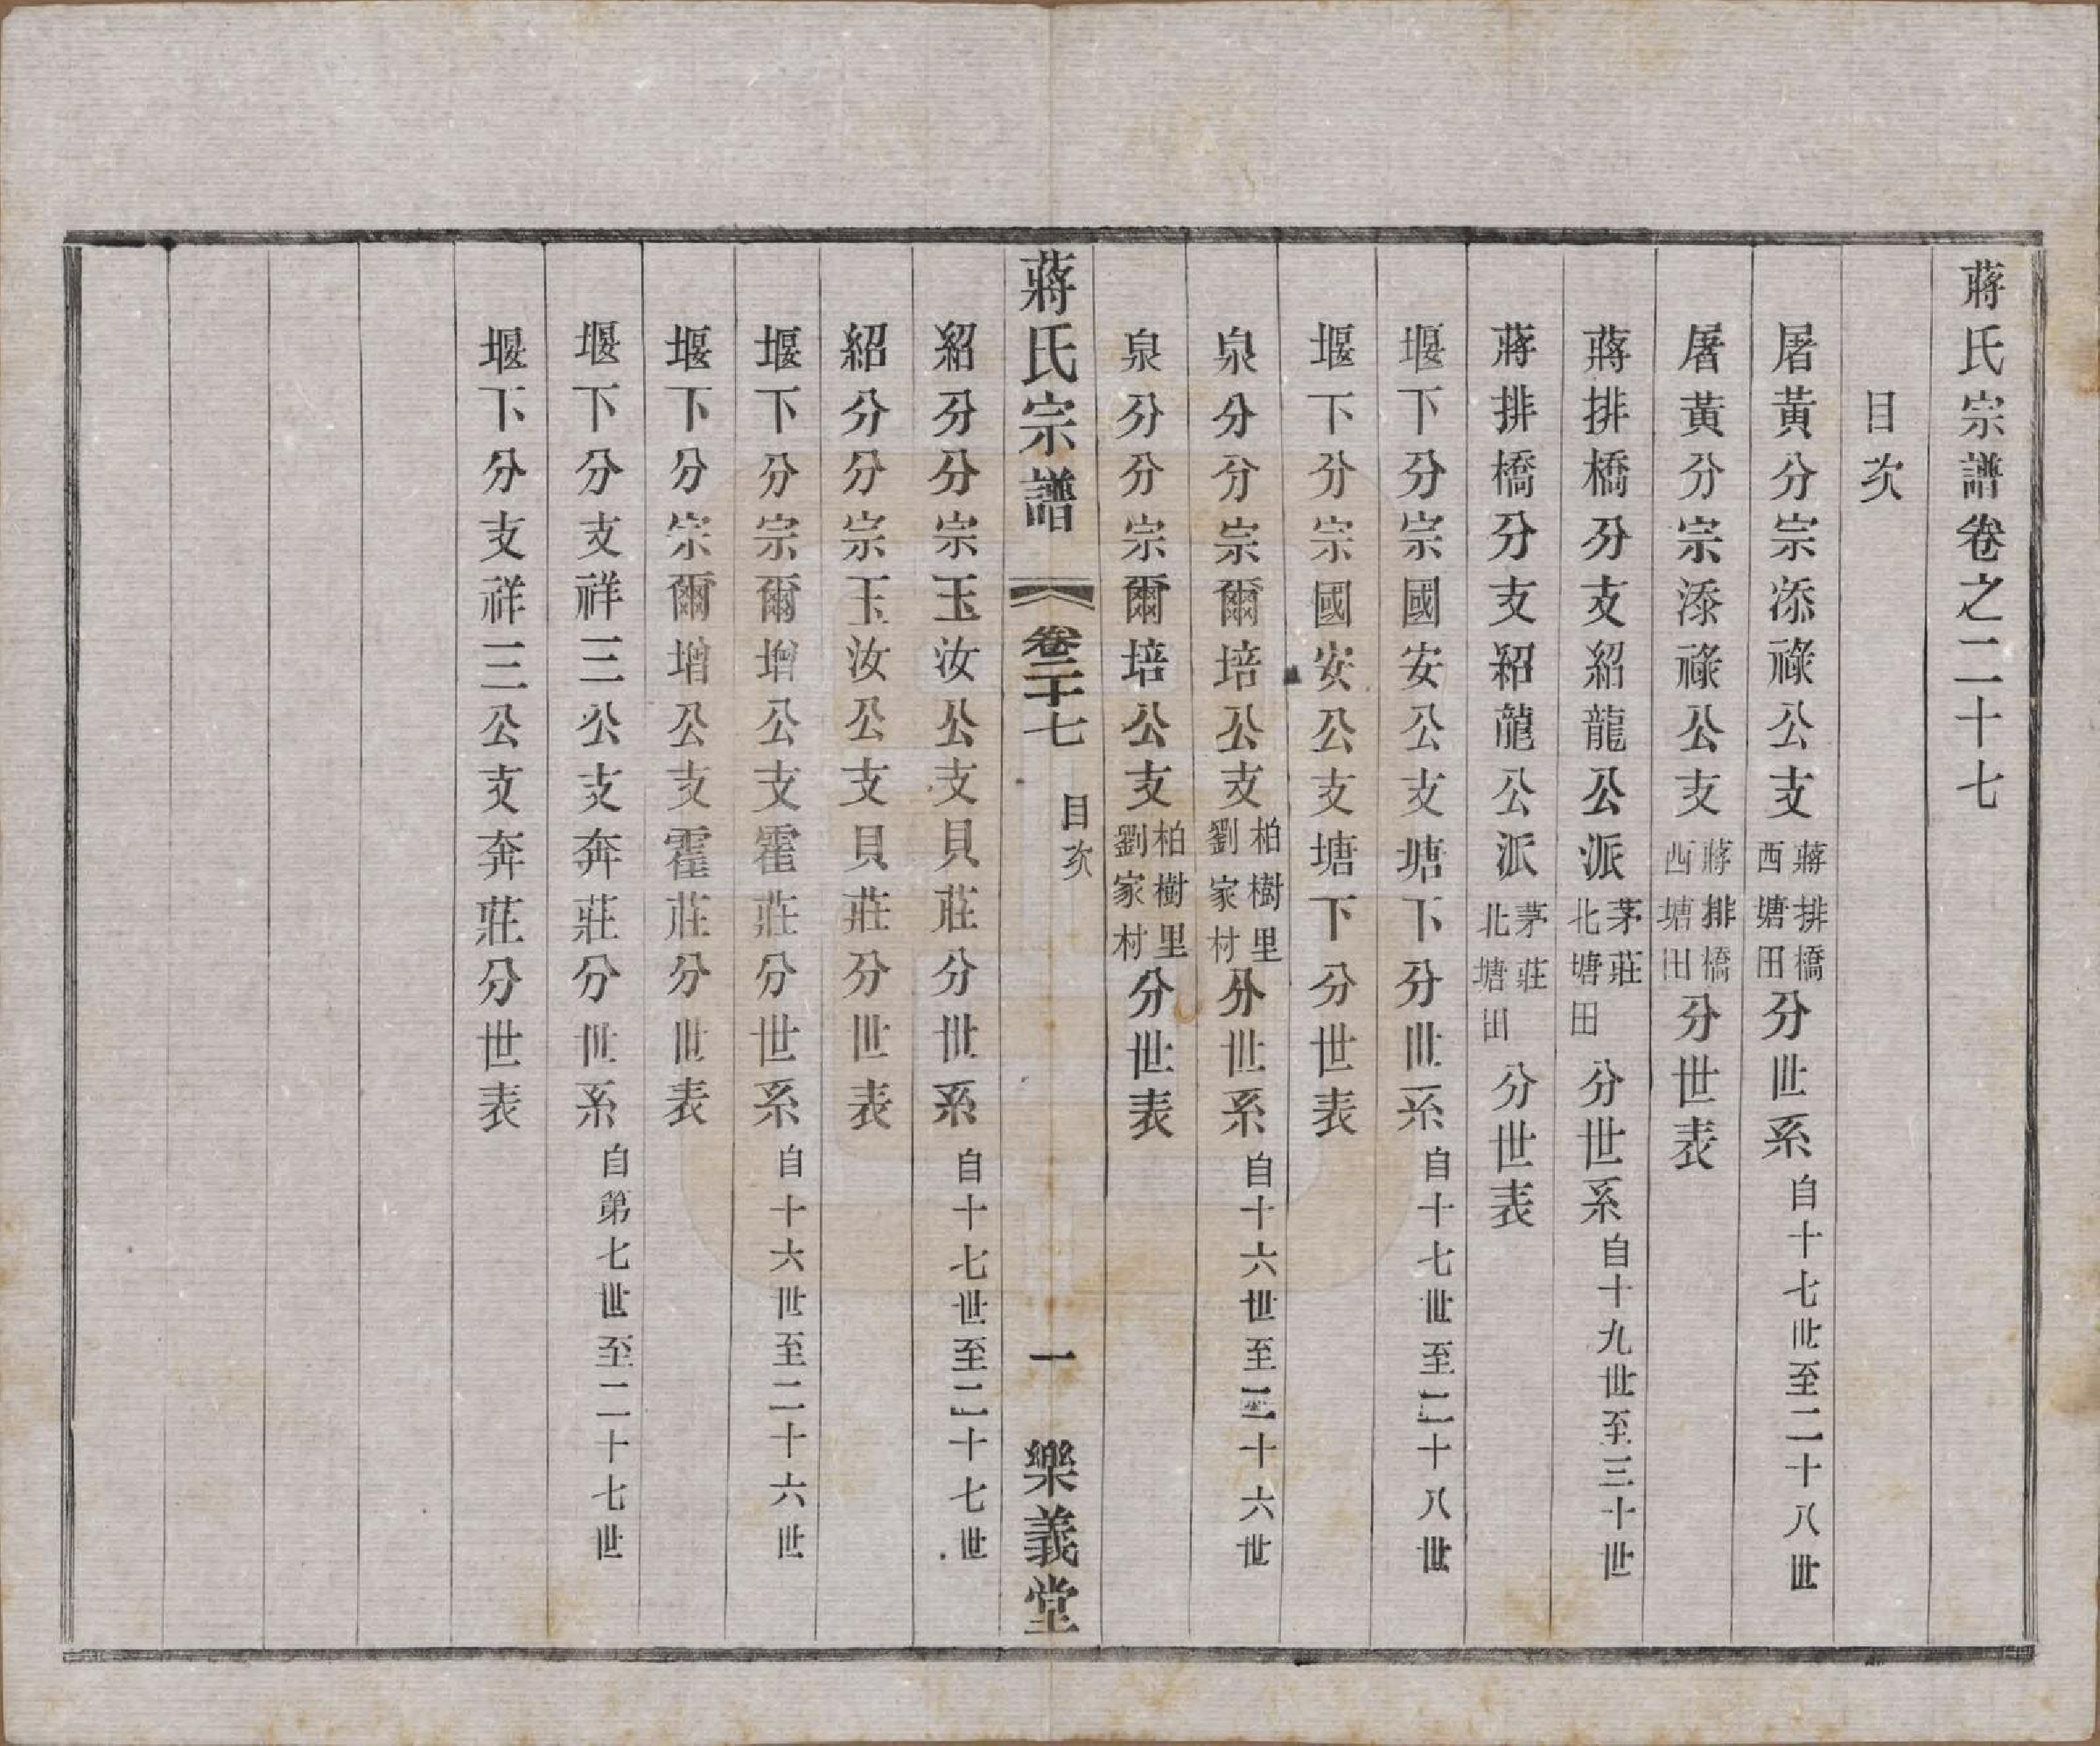 蔣氏宗譜卷之二十七
目次
屠黃分宗添祿公支蔣排橋西塘田分世系自十七世至二十八世
屠黃分宗添祿公支蔣排橋西塘田分世表
蔣排橋分支紹龍公派茅莊北塘田分世系自十九世至三十世
蔣排橋分支紹龍公派茅莊北塘田分世表
堰下分宗國安公支塘下分世系自十七世至二十八世
堰下分宗國安公支塘下分世表
泉分分宗爾培公支柏樹里劉家村分世系自十六世至二十六世
泉分分宗爾培公支柏樹里劉家村分世表
蔣氏宗譜 卷二十七 目次 一 樂義堂
紹分分宗玉汝公支貝莊分世系自十七世至二十七世
紹分分宗玉汝公支貝莊分世表
堰下分宗爾增公支霍莊分世系自十六世至二十六世
堰下分宗爾增公支霍莊分世表
堰下分支祥三公支奔莊分世系自第七世至二十七世
堰下分支祥三公支奔莊分世表